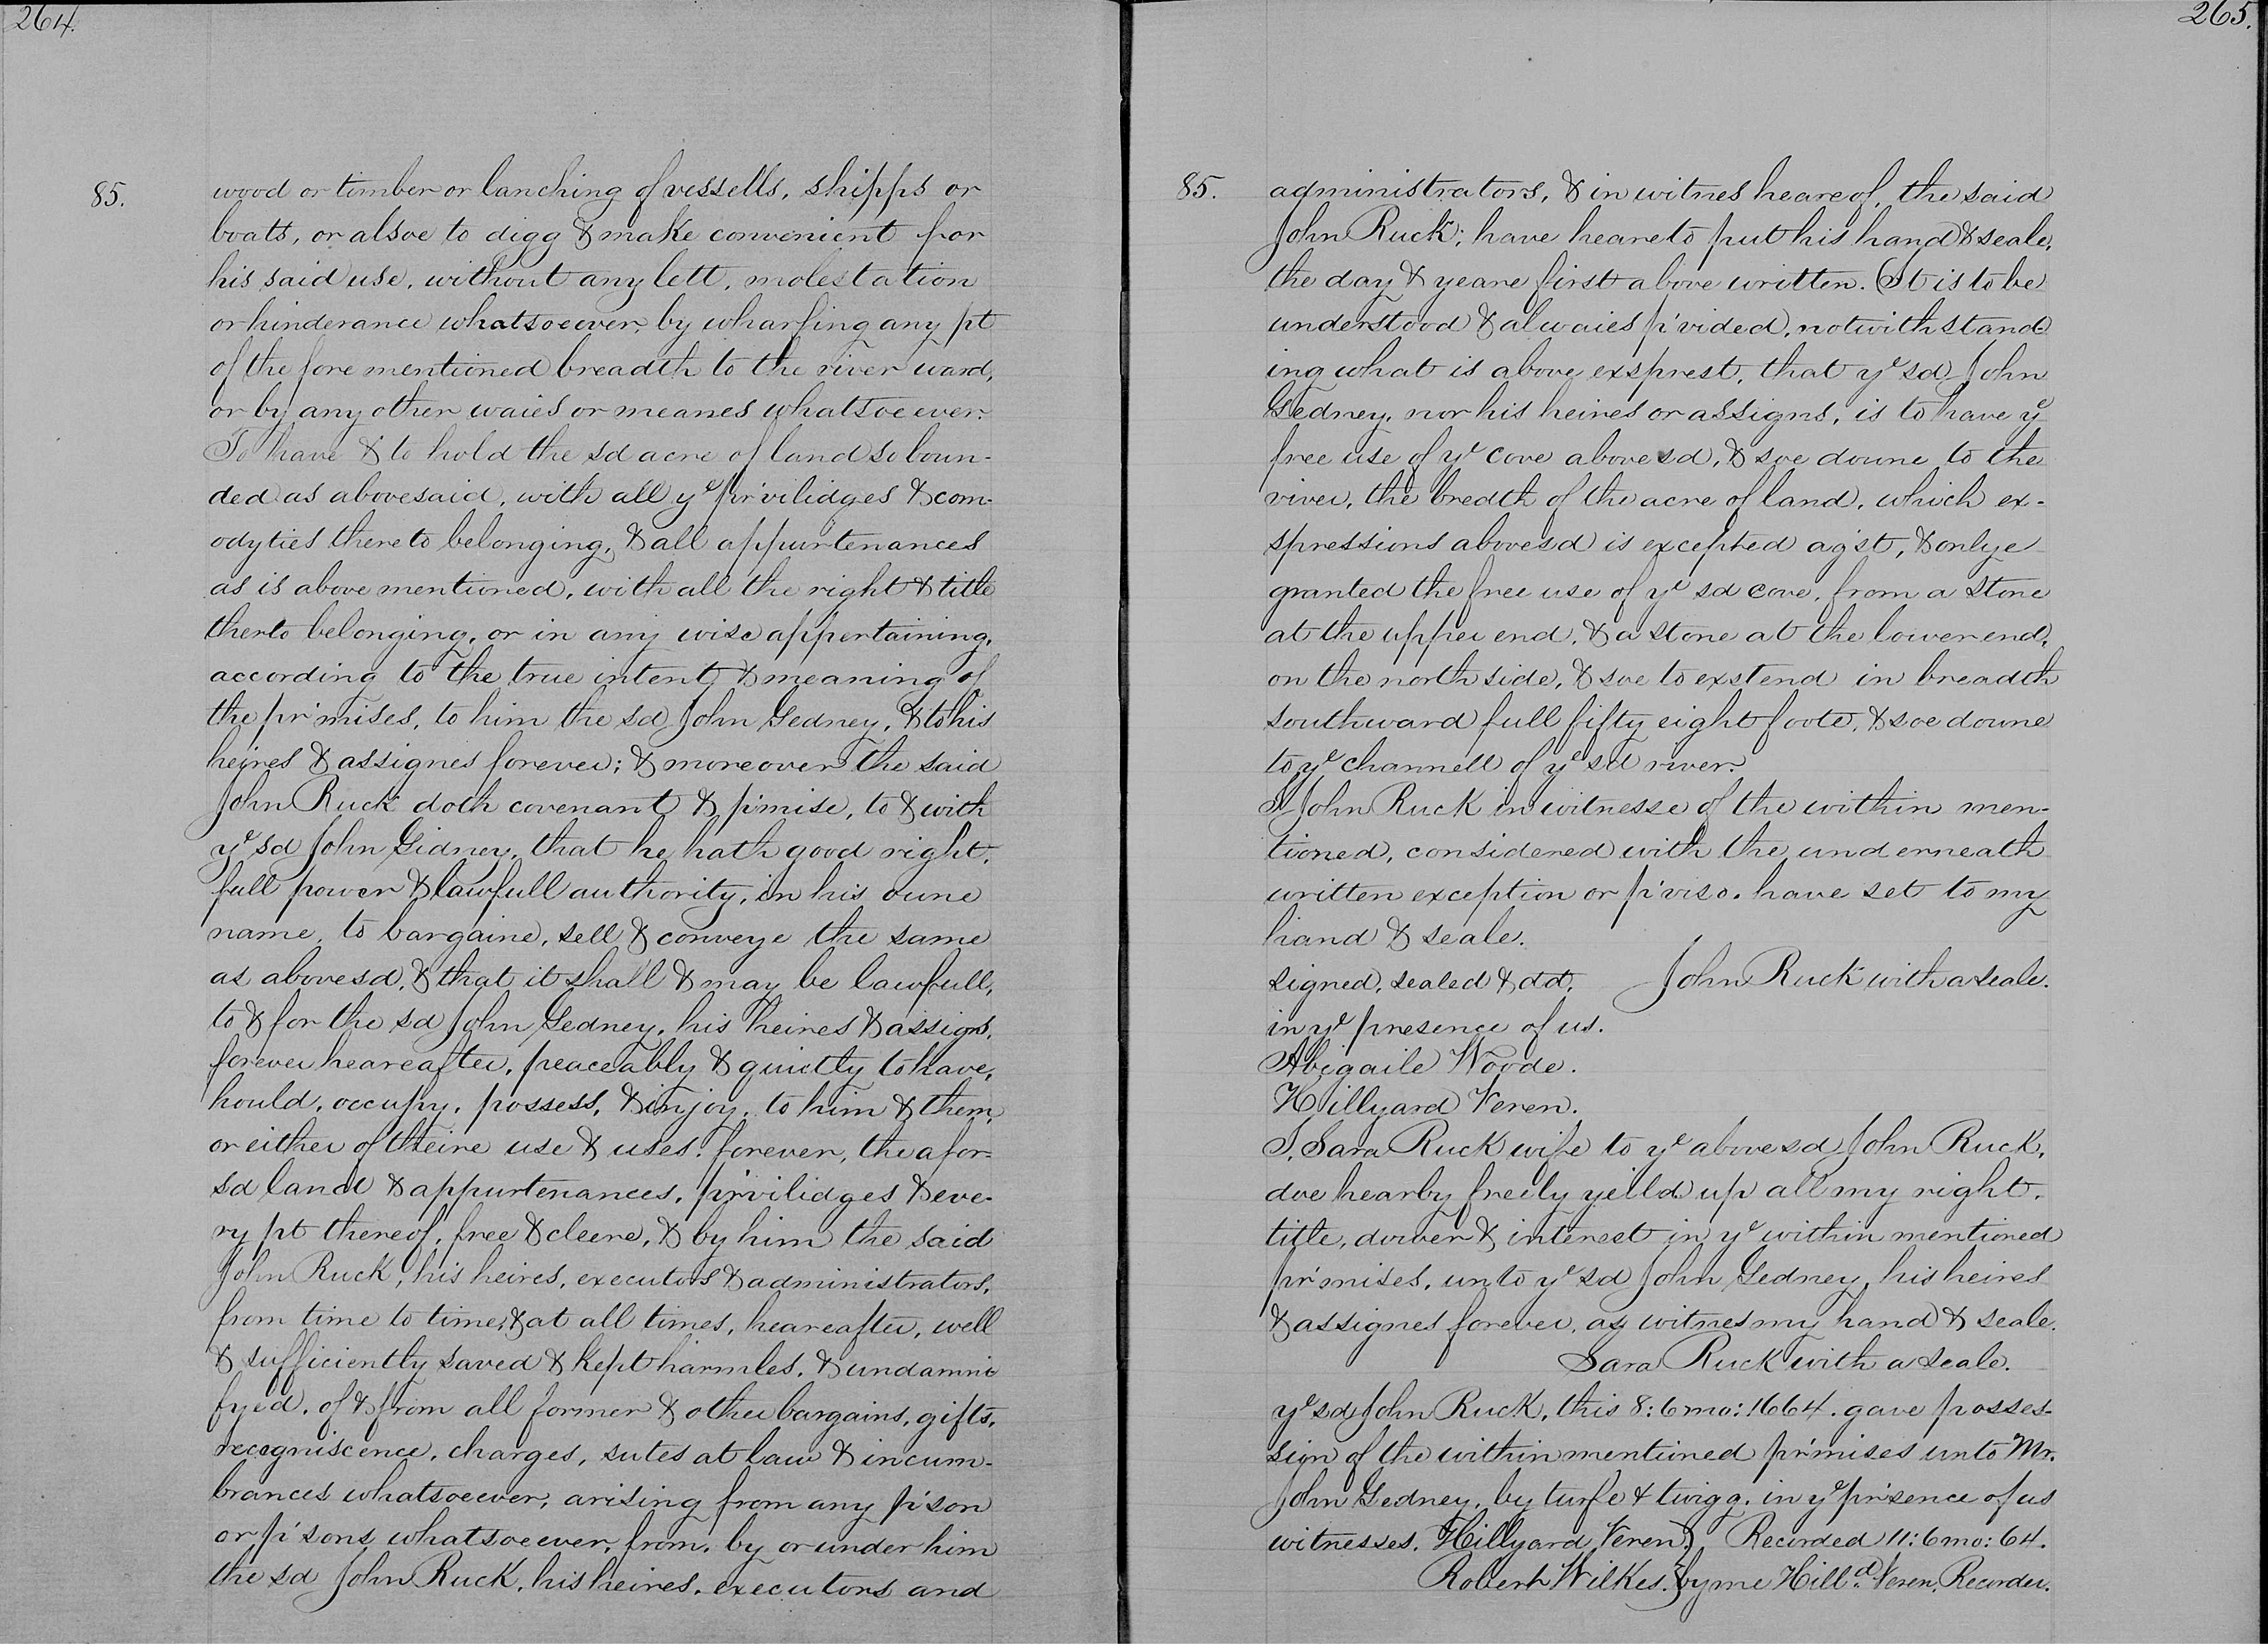 264.
85.
wood or timber or lanching of vessells, shipps or
boats, or alsoe to digg & make convenient for
his said use, without any lett, molestation
or hinderance whatsoeever, by wharfing any pt
of the fore mentioned breadth to the river ward,
or by any other waies or meanes whatsoeever.
To have & to hold the sd acre of land so boun-
ded as abovesaid, with all ye pr'vilidges & com-
odyties thereto belonging, & all appurtenances
as is above mentioned, with all the right & title
therto belonging, or in any wise appertaining,
according to the true intent & meaning of
the pr'mises, to him the sd John Gedney, & to his
heires & assignes forever; & moreover the said
John Ruck doth covenant & p'mise, to & with
ye sd John Gidney, that he hath good right,
full power & lawfull authority, in his oune
name, to bargaine, sell & conveye the same
as abovesd, & that it shall & may be lawfull,
to & for the sd John Gedney, his heires & assigns,
forever heareafter, peaceably & quietly to have,
hould, occupy, possess, & injoy, to him & them,
or either of theire use & uses forever, the afor-
sd land & appurtenances, pr'vilidges & eve-
ry pt thereof, free & cleere, & by him the said
John Ruck, his heires, executors & administrators,
from time to time, & at all times, heareafter, well
& sufficiently saved & kept harmles, & undamni
fyed, of & from all former & other bargains, gifts,
recogniscence, charges, sutes at law & incum-
brances whatsoeever, arising from any p'son
or p'sons whatsoeever, from, by or under him
the sd John Ruck, his heires, executors and
265.
85.
administrators, & in witnes heareof, the said
John Ruck; have heareto put his hand & seale,
the day & yeare first above written. (It is to be
understood & alwaies p'vided, notwithstand-
ing what is above exsprest, that ye sd John
Gedney, nor his heires or assigns, is to have ye
free use of ye cove abovesd, & soe doune to the
river, the bredth of the acre of land, which ex-
spressions abovesd is excepted ag'st, & onlye
granted the free use of ye sd cove, from a stone
at the upper end, & a stone at the lower end,
on the north side, & soe to exstend in breadth
southward full fifty eight foote, & soe doune
to ye channell of ye sd river.
I John Ruck in witnesse of the within men-
tioned, considered with the underneath
written exception or p'viso. have set to my
hand & seale.
signed, sealed & dd, John Ruck with a seale.
in ye presence of us.
Abigaile Woode.
Hillyard Veren.
I, Sara Ruck wife to ye abovesd John Ruck,
doe hearby freely yeild up all my right,
title, dower & interest in ye within mentioned
pr'mises, unto ye sd John Gedney, his heires
& assignes forever, as witnes my hand & seale.
Sara Ruck with a seale.
ye sd John Ruck, this 8: 6 mo: 1664. gave posses-
sion of the within mentioned pr'mises unto Mr.
John Gedney, by turfe & twigg, in ye pr'sence of us
witnesses. Hillyard Veren } Recorded 11: 6 mo: 64.
Robert Wilkes. } by me Hilld. Veren, Recorder.